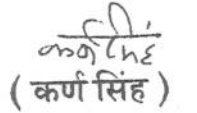 कर्ण सिंह
( कर्ण सिंह )